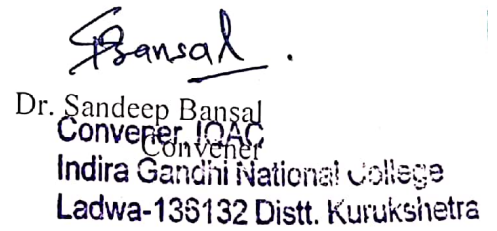 SBansal.
Dr. Sandeep Bansal
Convener, IQAC
Convener
Indira Gandhi National College
Ladwa-136132 Distt. Kurukshetra